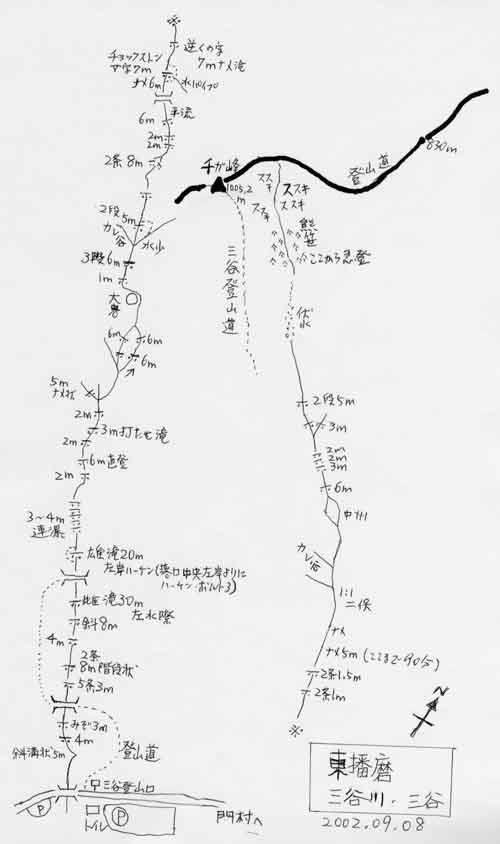 ※
逆くの字
7mナメ滝
チョックストン
マ字7m
ナメ6m
水パイプ
平流
6m
2m
2m
2条8m
2段5m
カレ谷
水少
3段6m
1m
大岩
6m
6m
6m
5m
ナメ状
2m
3m打たせ滝
2m
6m直登
2m
3〜4m
連瀑
雄滝20m
左岸ハーケン(落口中央左岸よりに
ハーケン・ボルト3)
雌滝30m
左水際
斜8m
4m
2条
8m階段状
5条3m
みぞ3m
4m
斜溝状5m
登山道
三谷登山口
P
トイレ
P
門村へ
千ガ峰
1005.2
m
登山道
830m
三谷登山道
ススキ
ススキ
ススキ
ススキ
熊笹
ここから忍登
伏水
2段5m
3m
2m
2m
3m
6m
中州
カレ谷
1:1
二俣
ナメ
ナメ5m(ここまで90分)
2条1.5m
2条1m
※
N
東播磨
三谷川・三谷
2002.09.08